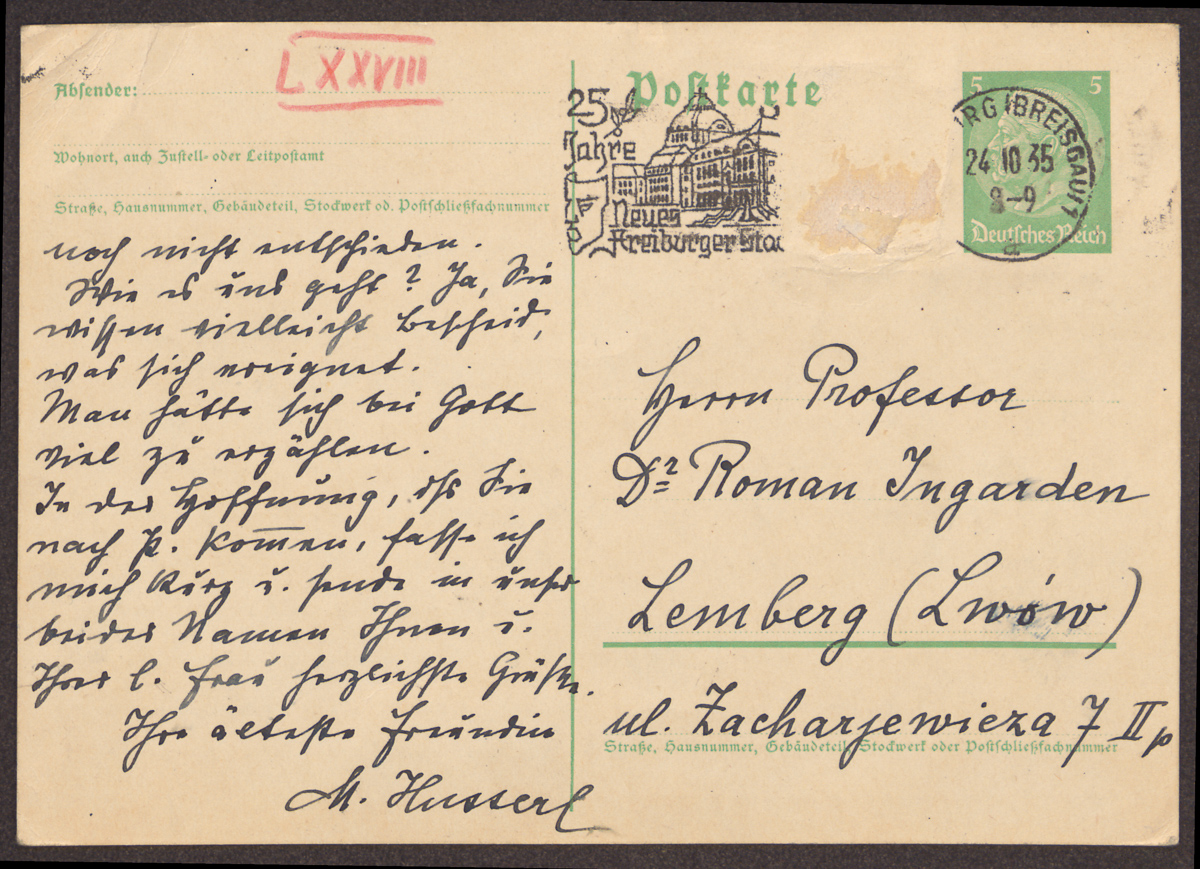 LXXVIII
Absender:
Wohnort, auch Zustell- oder Leitpostamt
Straße, Hausnummer, Gebäudeteil, Stockwerk od. Postschließfachnummer
noch nicht entschieden.
Wie es uns geht? Ja, Sie
wissen vielleicht Bescheid,
was sich ereignet.
Man hätte sich bei Gott
viel zu erzählen.
In der Hoffnung, daß Sie
nach P. kom̅en, fasse ich
mich kurz u. sende in unser
beider Namen Ihnen u.
Ihrer l. Frau herzlichste Grüße.
Ihre älteste Freundin
M. Husserl
Postkarte
25
Jahre
Neues
Freiburger Sta
5 5
URG (BREISGAU) 1
24.10.35
8-9
Deutsches Reich
Herrn Professor
Dr Roman Ingarden
Lemberg (Lwów)
ul. Zacharjewicza 7 II p
Straße, Hausnummer, Gebäudeteil, Stockwerk oder Postschließfachnummer